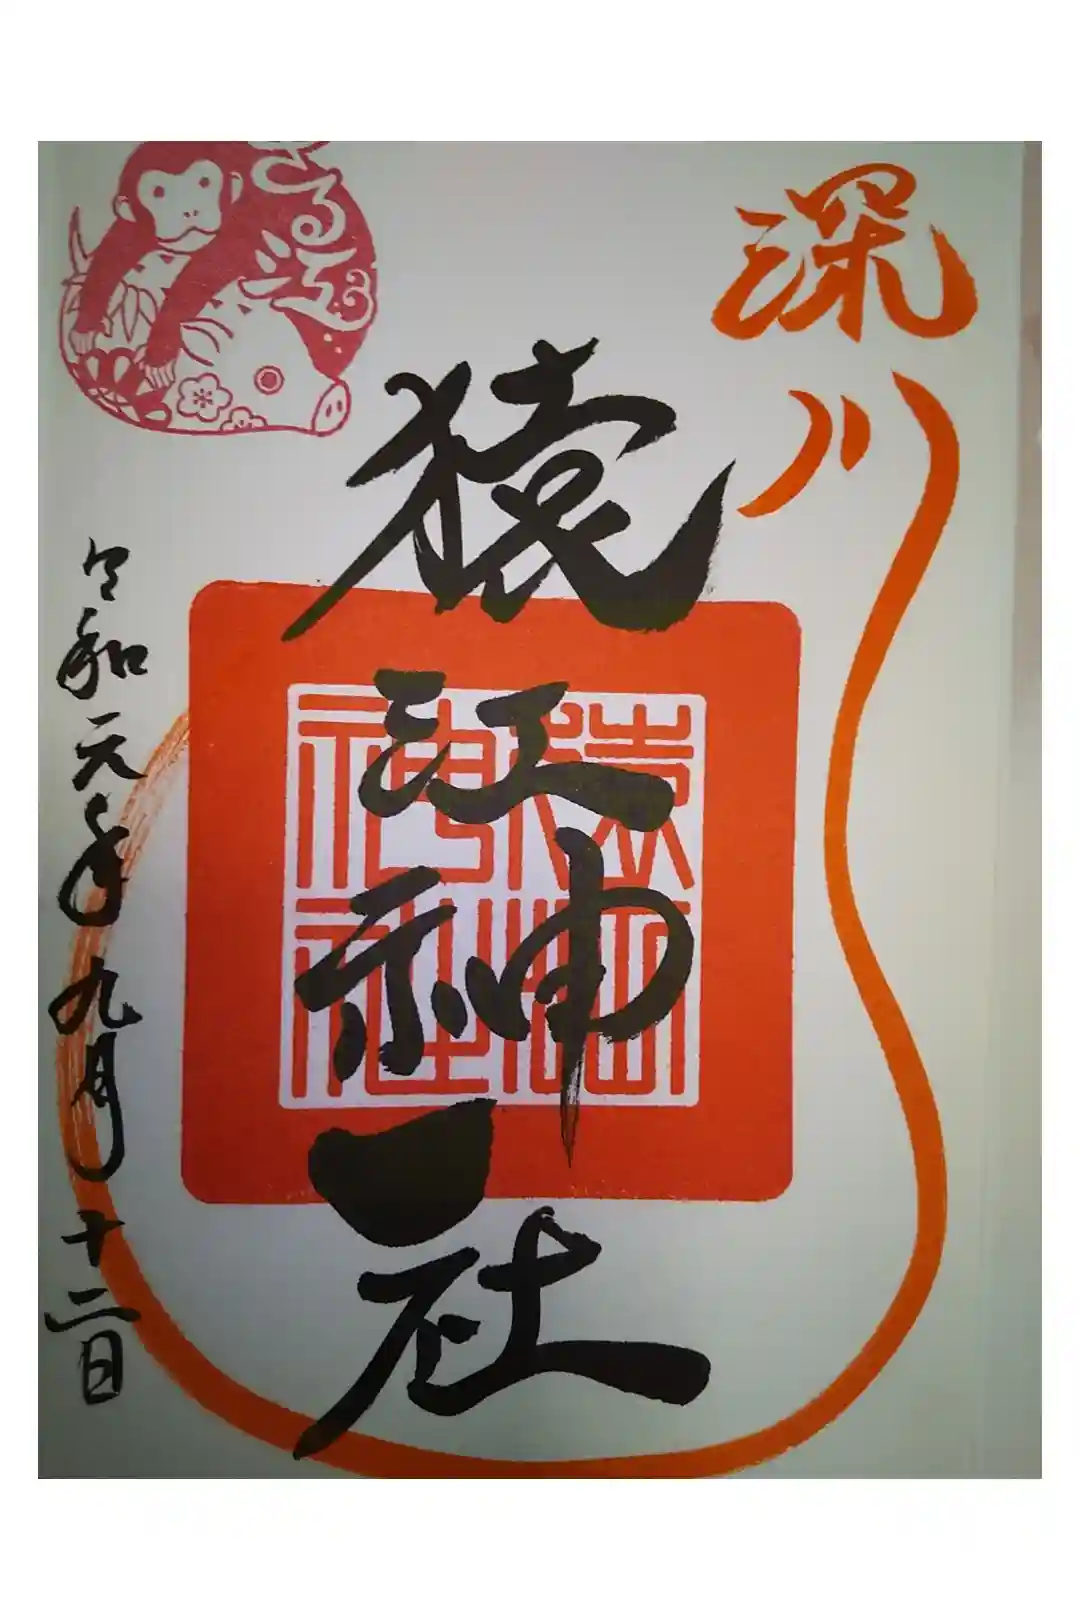 深川
猿江神社
猿江神社
令和元年九月十二日
さる江